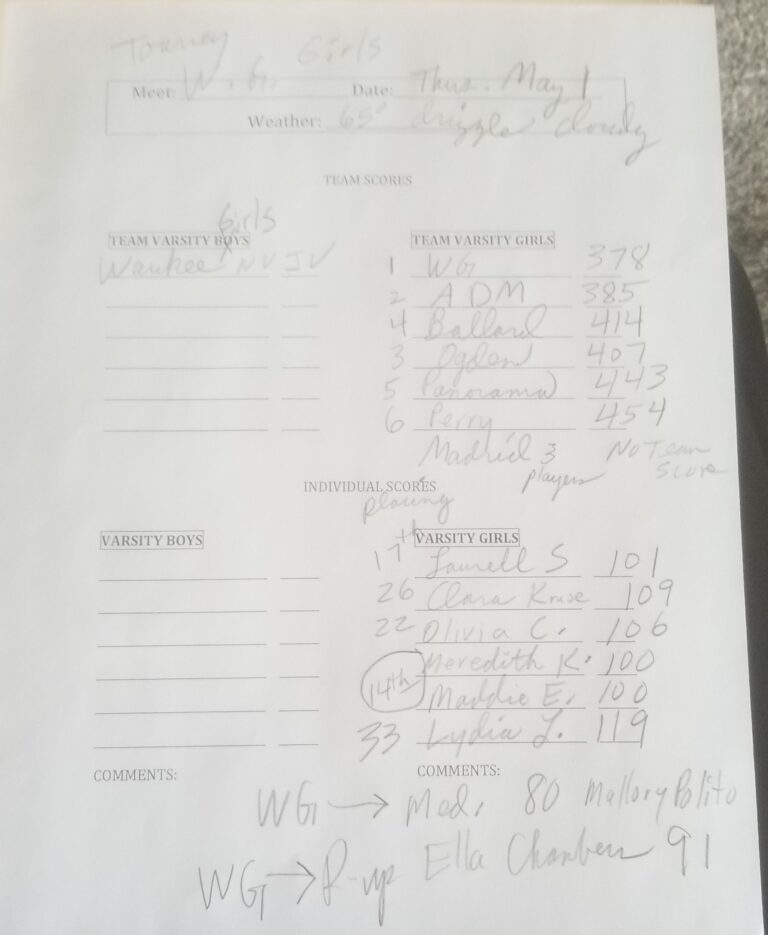 Tourney Girls
Meet: W.G. Date: Thus. May 1
Weather: 65° drizzle cloudy
TEAM SCORES
Girls
TEAM VARSITY BOYS
Waukee NW JV
TEAM VARSITY GIRLS
1 WG 378
2 ADM 385
4 Ballard 414
3 Ogden 407
5 Panorama 443
6 Perry 454
Madrid 3 players No Team Score
INDIVIDUAL SCORES
placing
VARSITY BOYS
VARSITY GIRLS
17th Laurell S 101
26 Clara Kruse 109
22 Olivia C. 106
Meredith K. 100
14th Maddie E. 100
33 Lydia L. 119
COMMENTS:
COMMENTS:
WG → Med. 80 Mallory Polito
WG → R-up Ella Chambers 91